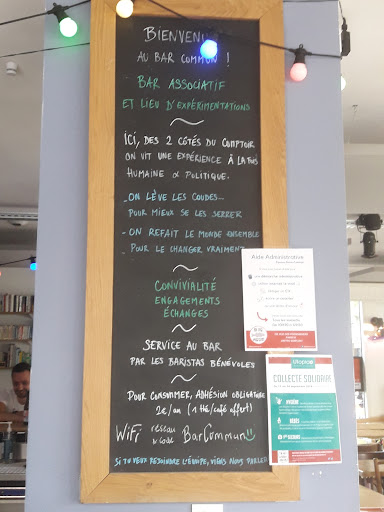 BIENVENUE
AU BAR COMMUN !
BAR ASSOCIATIF
ET LIEU D'EXPÉRIMENTATIONS
ICI, DES 2 CÔTÉS DU COMPTOIR
ON VIT UNE EXPÉRIENCE À LA FOIS
HUMAINE & POLITIQUE.
- ON LÈVE LES COUDES...
POUR MIEUX SE LES SERRER
- ON REFAIT LE MONDE ENSEMBLE
- POUR LE CHANGER VRAIMENT
CONVIVIALITÉ
ENGAGEMENTS
ÉCHANGES
SERVICE AU BAR
PAR LES BARISTAS BÉNÉVOLES
POUR CONSOMMER, ADHÉSION OBLIGATOIRE
2€/an (1 thé/café offert)
WiFi réseau & code BarCommun
SI TU VEUX REJOINDRE L'ÉQUIPE, VIENS NOUS PARLER
Aide Administrative
Utopia
COLLECTE SOLIDAIRE